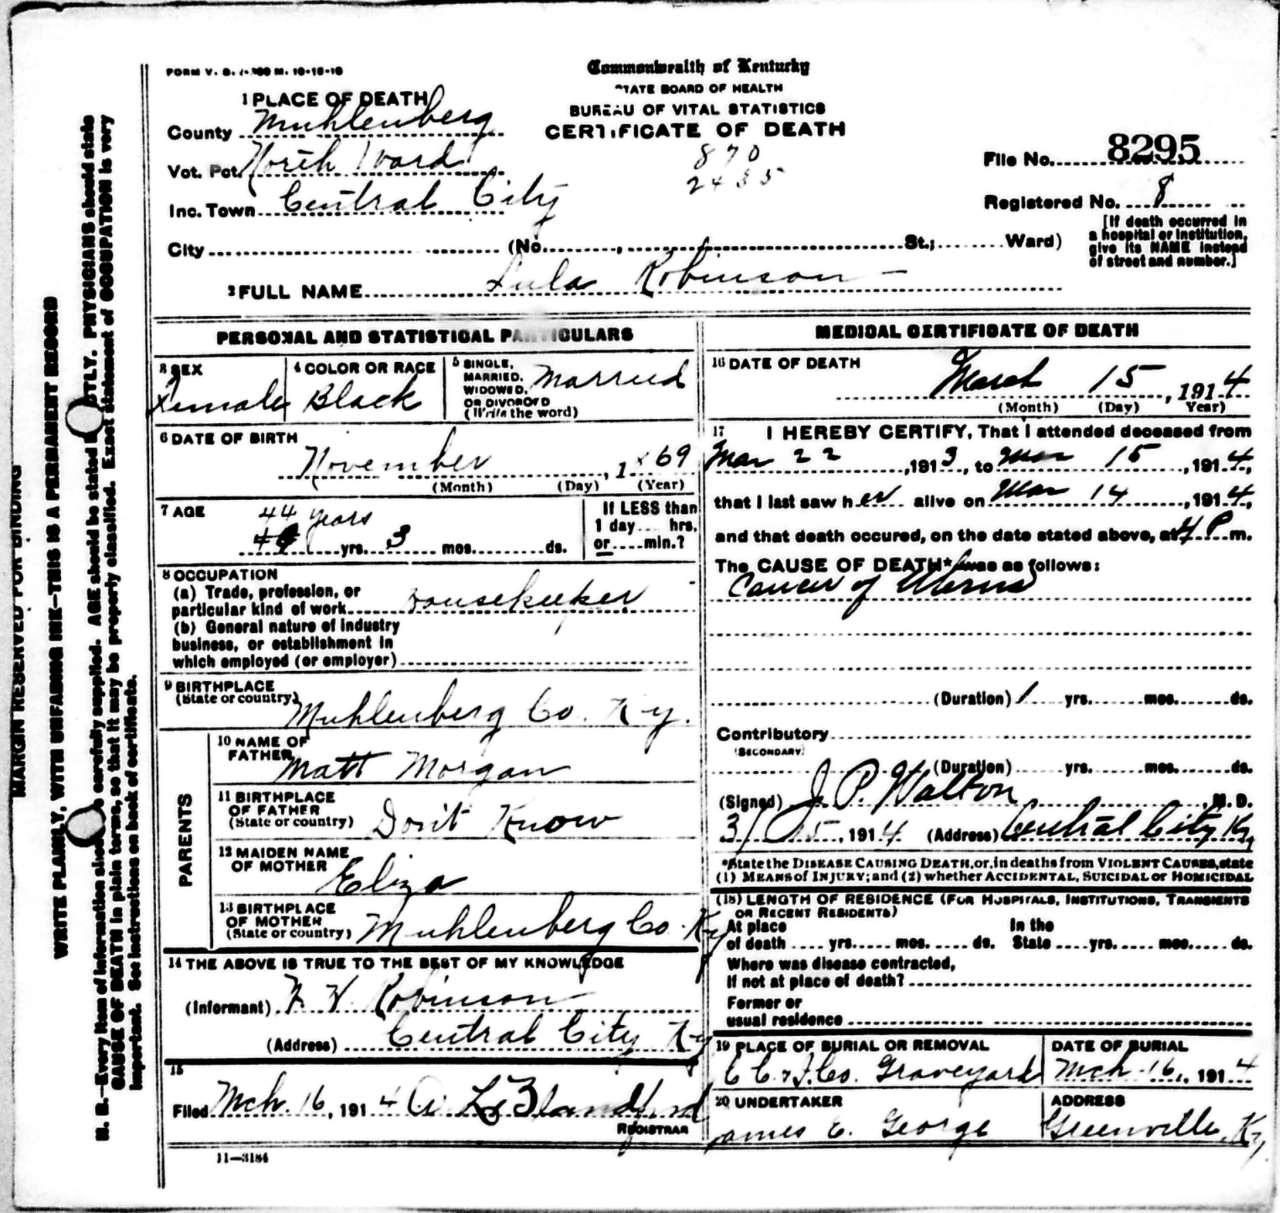 FORM V. S. 1-300 M. 10-15-10
Commonwealth of Kentucky
STATE BOARD OF HEALTH
BUREAU OF VITAL STATISTICS
CERTIFICATE OF DEATH
1 PLACE OF DEATH
County Muhlenberg
Vot. Pct. North Ward
Inc. Town Central City
City (No. , St.; Ward)
870
2435
File No. 8295
Registered No. 8
[If death occurred in
a hospital or institution,
give its NAME instead
of street and number.]
2 FULL NAME Lula Robinson
PERSONAL AND STATISTICAL PARTICULARS
3 SEX Female
4 COLOR OR RACE Black
5 SINGLE, MARRIED, WIDOWED, OR DIVORCED (Write the word) Married
6 DATE OF BIRTH
November , 1869
(Month) (Day) (Year)
7 AGE
44 years
yrs. 3 mos. ds.
If LESS than
1 day hrs.
or min.?
8 OCCUPATION
(a) Trade, profession, or
particular kind of work Housekeeper
(b) General nature of industry
business, or establishment in
which employed (or employer)
9 BIRTHPLACE
(State or country) Muhlenberg Co. Ky.
PARENTS
10 NAME OF
FATHER Matt Morgan
11 BIRTHPLACE
OF FATHER
(State or country) Don't Know
12 MAIDEN NAME
OF MOTHER Eliza
13 BIRTHPLACE
OF MOTHER
(State or country) Muhlenberg Co. Ky
14 THE ABOVE IS TRUE TO THE BEST OF MY KNOWLEDGE
(Informant) Robinson
(Address) Central City Ky
15
Filed Mch. 16, 1914
REGISTRAR
11—3184
MEDICAL CERTIFICATE OF DEATH
16 DATE OF DEATH
March 15, 1914
(Month) (Day) Year)
17 I HEREBY CERTIFY, That I attended deceased from
Mar 22, 1913, to Mar 15, 1914,
that I last saw her alive on Mar 14, 1914,
and that death occured, on the date stated above, at 4 P m.
The CAUSE OF DEATH* was as follows:
Cancer of Uterus
(Duration) 1 yrs. mos. ds.
Contributory
(SECONDARY)
(Duration) yrs. mos. ds.
(Signed) J. P. Walton, M. D.
3/15, 1914 (Address) Central City Ky
*State the DISEASE CAUSING DEATH, or, in deaths from VIOLENT CAUSES, state
(1) MEANS of INJURY; and (2) whether ACCIDENTAL, SUICIDAL or HOMICIDAL
(18) LENGTH OF RESIDENCE (FOR HOSPITALS, INSTITUTIONS, TRANSIENTS
OR RECENT RESIDENTS)
At place In the
of death yrs. mos. ds. State yrs. mos. ds.
Where was disease contracted,
If not at place of death?
Former or
usual residence
19 PLACE OF BURIAL OR REMOVAL
Graveyard
DATE OF BURIAL
Mch. 16, 1914
20 UNDERTAKER
James E. George
ADDRESS
Greenville, Ky,
MARGIN RESERVED FOR BINDING
WRITE PLAINLY, WITH UNFADING INK—THIS IS A PERMANENT RECORD
N. B.—Every item of information should be carefully supplied. AGE should be stated EXACTLY. PHYSICIANS should state
CAUSE OF DEATH in plain terms, so that it may be properly classified. Exact statement of OCCUPATION is very
important. See instructions on back of certificate.